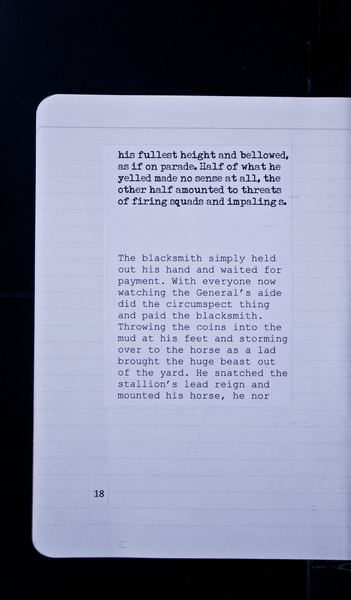 his fullest height and bellowed,
as if on parade. Half of what he
yelled made no sense at all, the
other half amounted to threats
of firing squads and impaling s.
The blacksmith simply held
out his hand and waited for
payment. With everyone now
watching the General's aide
did the circumspect thing
and paid the blacksmith.
Throwing the coins into the
mud at his feet and storming
over to the horse as a lad
brought the huge beast out
of the yard. He snatched the
stallion's lead reign and
mounted his horse, he nor
18